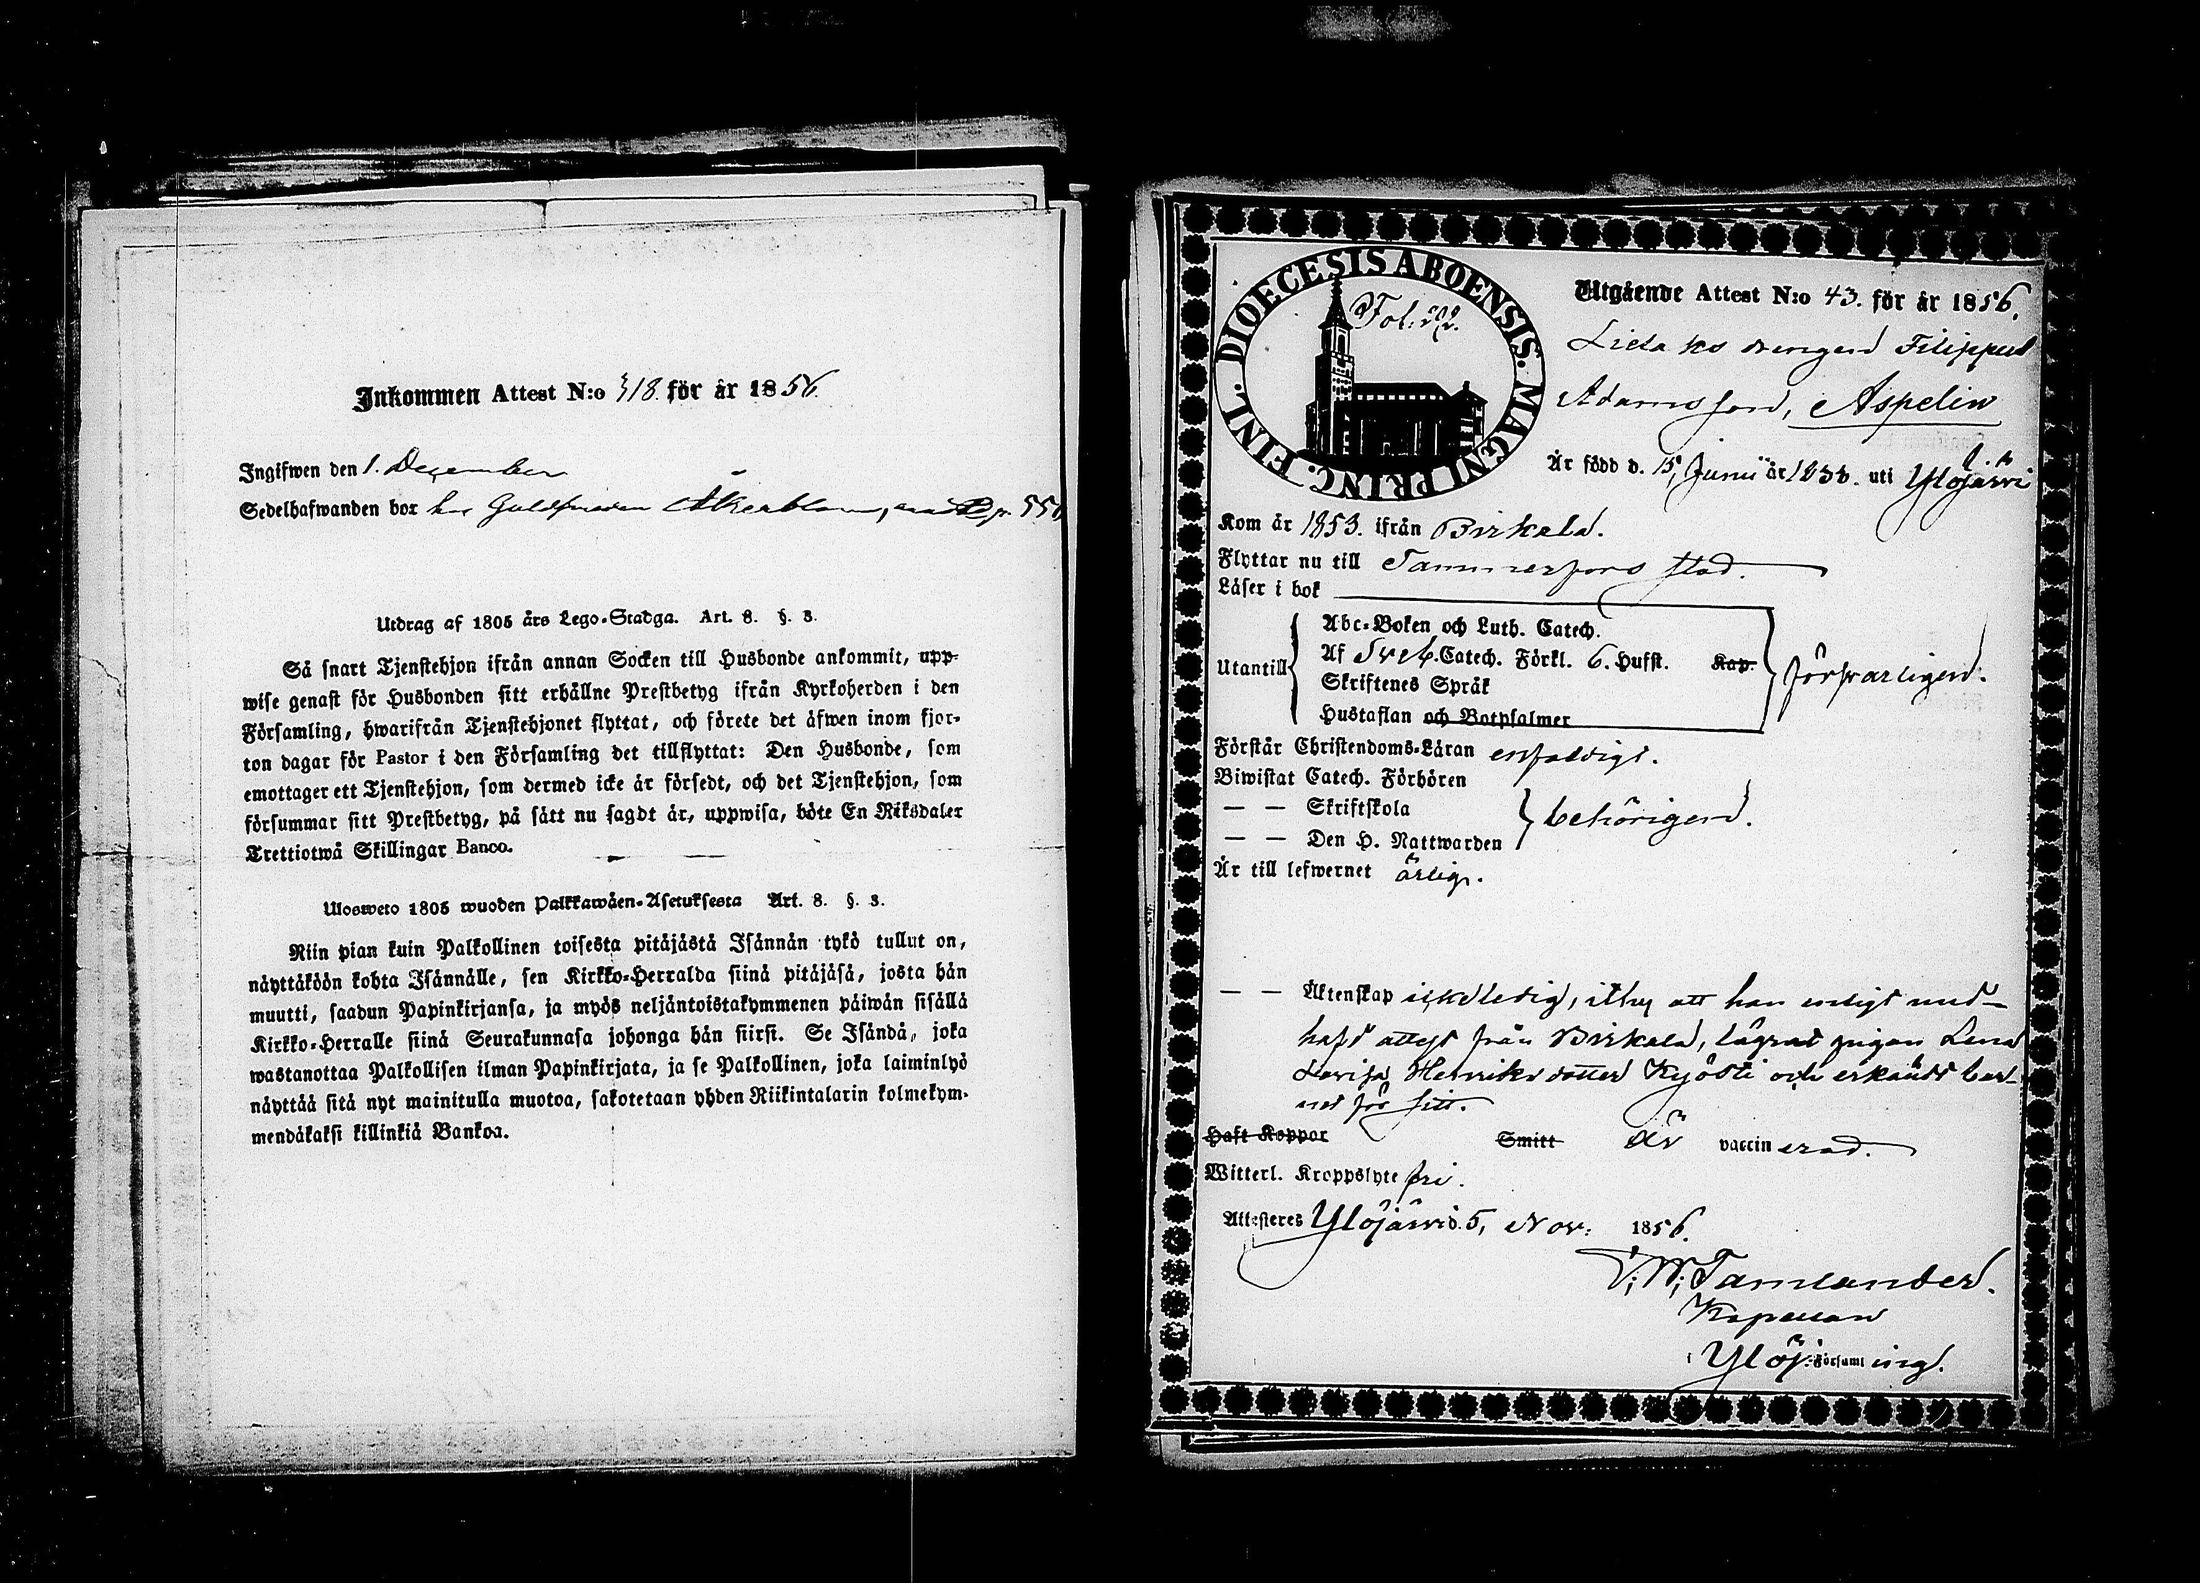 Inkommen Attest N:o 318 för år 1856.
Ingifwen den 1. December
Sedelhafwanden bor hos Guldsmeden Åkerblom, p. 550
Utdrag af 1805 års Lego-Stadga. Art. 8. §. 3.
Så snart Tjenstehjon ifrån annan Socken till Husbonde ankommit, upp-
wise genast för Husbonden sitt erhållne Prestbetyg ifrån Kyrkoherden i den
Församling, hwarifrån Tjenstehjonet flyttat, och förete det åfwen inom fjor-
ton dagar för Pastor i den Församling det tillflyttat: Den Husbonde, som
emottager ett Tjenstehjon, som dermed icke är försedt, och det Tjenstehjon, som
försummar sitt Prestbetyg, på sätt nu sagdt är, uppwisa, böte En Riksdaler
Trettiotwå Skillingar Banco.
Ulosweto 1805 wuoden Palkkawäen-Asetuksesta Art. 8. §. 3.
Niin pian kuin Palkollinen toisesta pitäjästä Isännän tykö tullut on,
näyttäköön kohta Isännälle, sen Kirkko-Herralda siinä pitäjäsä, josta hän
muutti, saadun Papinkirjansa, ja myös neljäntoistakymmenen päiwän sisällä
Kirkko-Herralle siinä Seurakunnasa johonga hän siirsi. Se Isändä, joka
wastanottaa Palkollisen ilman Papinkirjata, ja se Palkollinen, joka laiminlyö
näyttää sitä nyt mainitulla muotoa, sakotetaan yhden Riikintalarin kolmekym-
mendäkaksi killinkiä Bankoa.
DIOECESIS ABOENSIS. MAGNI PRINC. FINL.
Fol:
Utgående Attest N:o 43. för år 1856.
drengen Filippus
Adamsson, Aspelin
Är född d. 15, Junii år 1833. uti Ylöjärvi
Kom år 1853. ifrån Birkala.
Flyttar nu till Tammerfors stad.
Läser i bok
Utantill
Abc-Boken och Luth. Catech.
Af Sveb. Catech. Förkl. 6. Hufst. Kap.
Skriftenes Språk
Hustaflan och Botpsalmer
försvarligen.
Förstår Christendoms-Läran enfaldigt.
Biwistat Catech. Förhören
— — Skriftskola
— — Den H. Nattwarden
behörigen.
Är till lefwernet ärlig.
— — Äktenskap icke ledig, ithy att han enligt med-
haft attest från Birkala, lägrat pigan Lena
Lovisa Henriksdotter Kyösti och erkändt bar-
net för sitt.
Haft Koppor Smitt är vaccinerad.
Witterl. Kroppslyte fri.
Attesteres Ylöjärvi d. 5, Nov: 1856.
V. W. Tamlander.
Kapellan
i Ylöj: Församling.